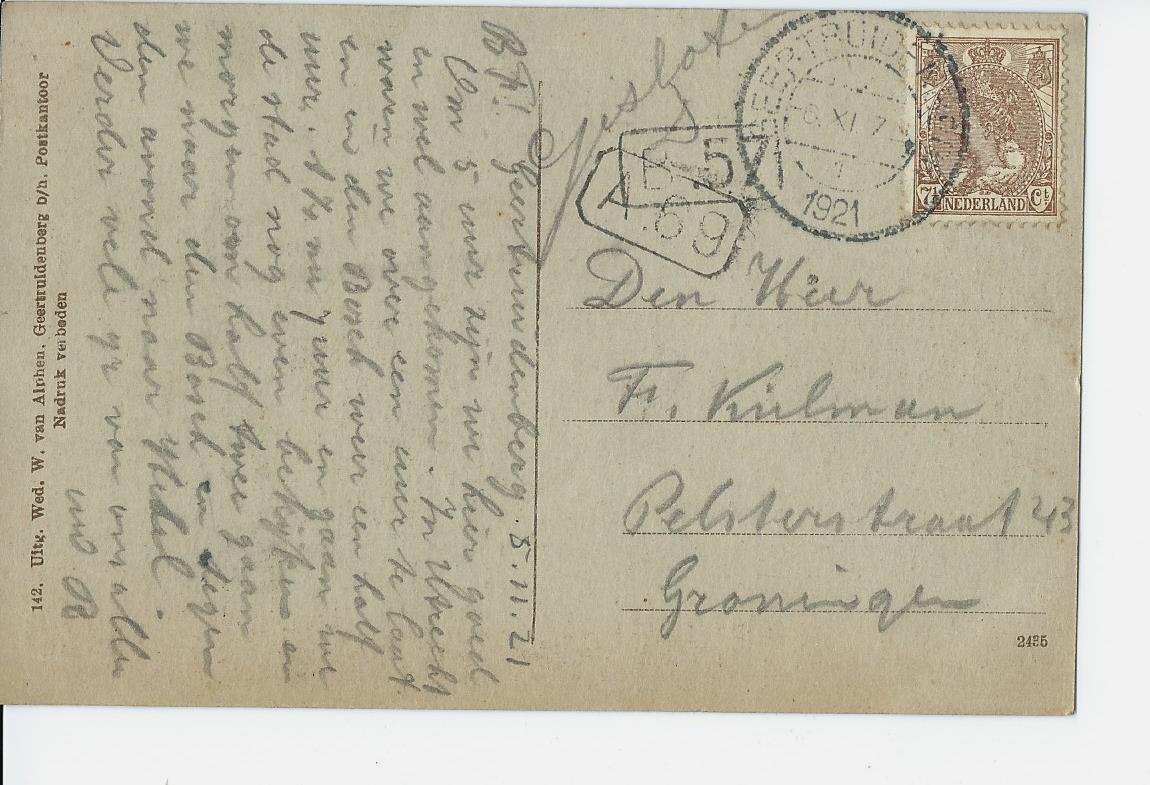 B F! Geertruidenberg. 5.11.21
Om 5 uur zijn we hier goed
en wel aangekomen. In Utrecht
waren we over een uur te laat
en in den Bosch weer een half
uur. 't Is nu 7 uur en gaan we
de stad nog even bekijken en
morgen om half twee gaan
we naar den Bosch en tegen
den avond naar
Verder vele gr van ons allen
uw R
142. Uitg. Wed. W. van Alphen, Geertruidenberg b/h. Postkantoor
Nadruk verboden
GEERTRUID
6. XI. 7
1
1921
B 5
A 89
7½ NEDERLAND Ct
Den Heer
Fr. Kulman
Pelsterstraat 43
Groningen
2435